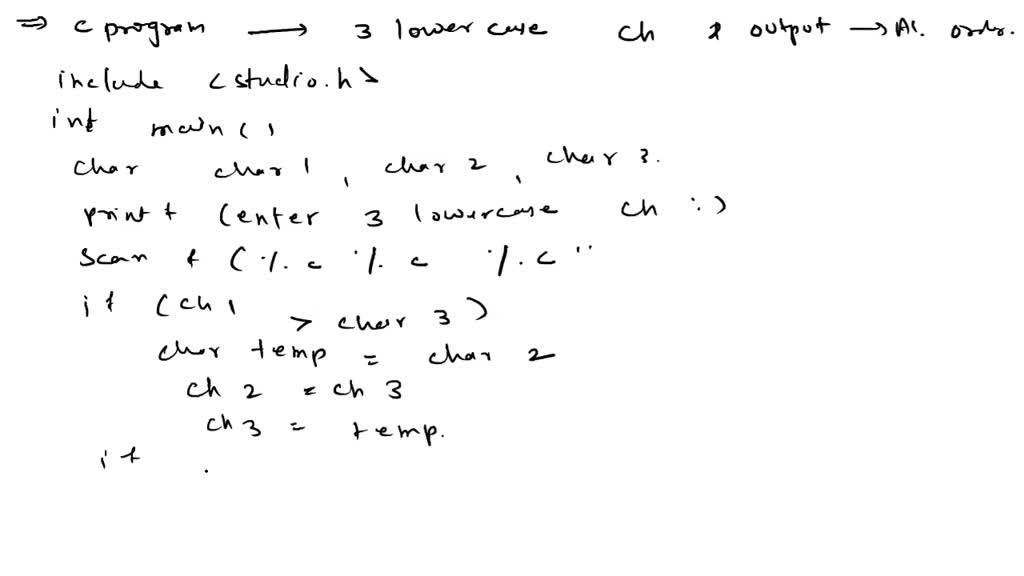 ⇒ c program → 3 lower case ch & output → Al. ordr.
include <studio.h>
int main( )
char char 1, char 2, char 3.
print f (enter 3 lowercase ch :)
scan f (%. c %. c %. c "
if (ch 1 > char 3)
char temp = char 2
ch 2 = ch 3
ch 3 = temp.
if .